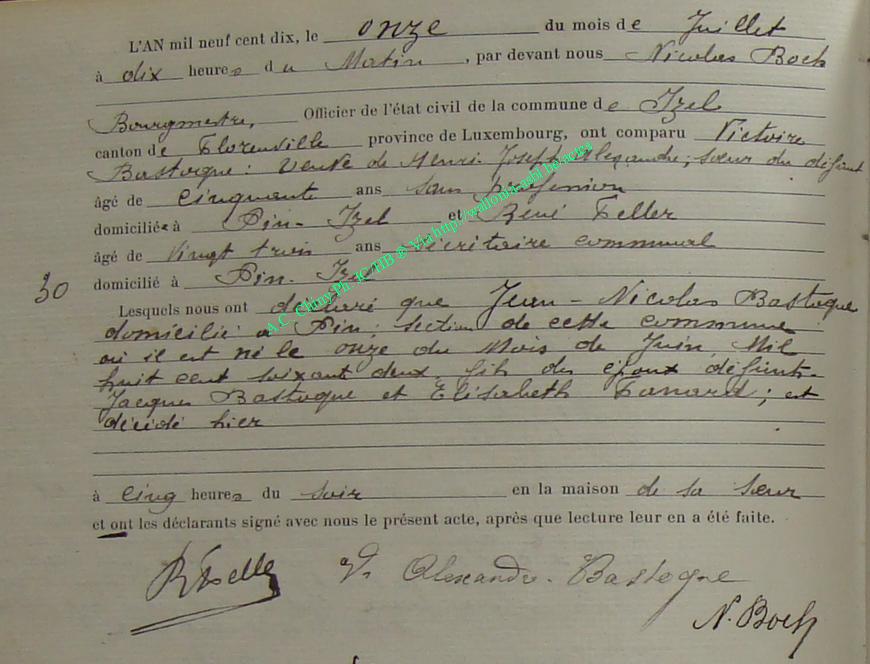 L'AN mil neuf cent dix, le onze du mois de Juillet
à dix heures du Matin, par devant nous Nicolas Boch
Bourgmestre, Officier de l'état civil de la commune de Izel
canton de Florenville province de Luxembourg, ont comparu Victoire
Bastogne: veuve de Henri-Joseph Alexandre, sœur du défunt
âgé de cinquante ans sans profession
domiciliée à Pin-Izel et René Feller
âgé de vingt trois ans secrétaire communal
domicilié à Pin-Izel
30
Lesquels nous ont déclaré que Jean-Nicolas Bastogne
domicilié à Pin, section de cette commune
où il est né le onze du Mois de Juin, Mil
huit cent soixant deux, fils des époux défunts
Jacques Bastogne et Elisabeth Fanard; est
décédé hier
à cinq heures du soir en la maison de sa sœur
et ont les déclarants signé avec nous le présent acte, après que lecture leur en a été faite.
Ve Alexandre-Bastogne
N. Boch
A.C. Chiny Ph. IC/HB © Via http://wallonia-asbl.be/actes